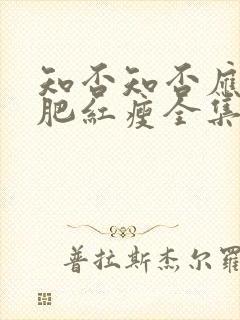 知否知否應
肥紅瘦全集
普拉斯杰尔羅